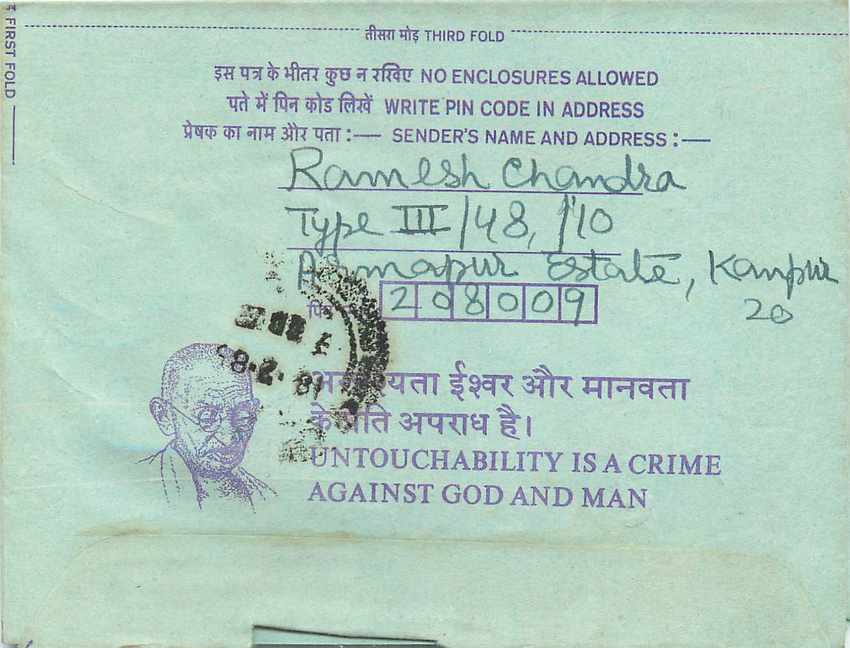 FIRST FOLD
तीसरा मोड़ THIRD FOLD
इस पत्र के भीतर कुछ न रखिए NO ENCLOSURES ALLOWED
पते में पिन कोड लिखें WRITE PIN CODE IN ADDRESS
प्रेषक का नाम और पता :— SENDER'S NAME AND ADDRESS :—
Ramesh Chandra
Type III/48, 110
Armapur Estate, Kanpur
208009 20
8.2.81
ईश्वर और मानवता
अपराध है।
UNTOUCHABILITY IS A CRIME
AGAINST GOD AND MAN